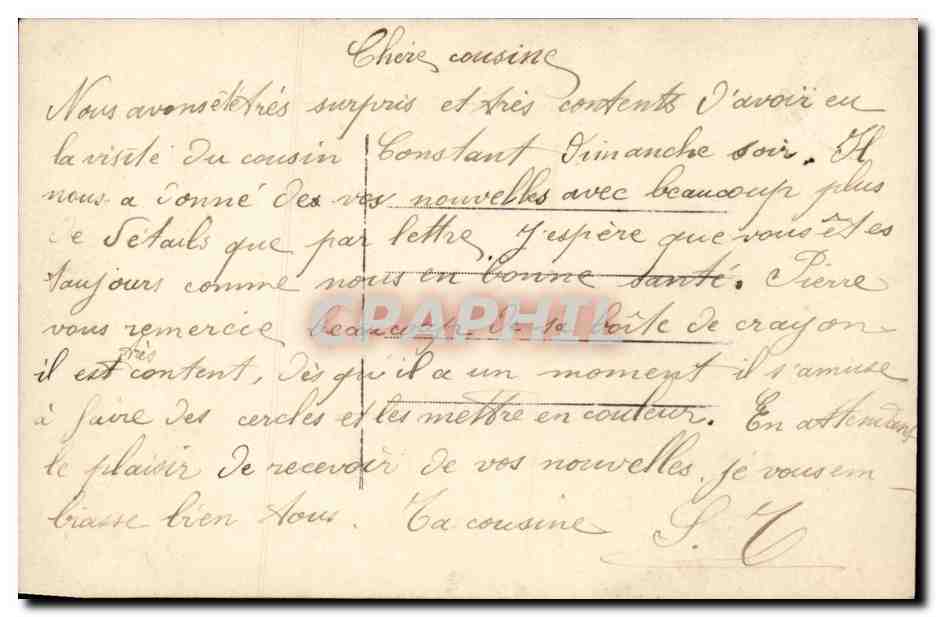 Chère cousine
Nous avons été très surpris et très contents d'avoir eu
la visite du cousin Constant Dimanche soir. Il
nous a donné des vos nouvelles avec beaucoup plus
de détails que par lettre. J'espère que vous êtes
toujours comme nous en bonne santé. Pierre
vous remercie beaucoup de sa boîte de crayon
il est très content, dès qu'il a un moment il s'amuse
à faire des cercles et les mettre en couleur. En attendant
le plaisir de recevoir de vos nouvelles, je vous em
brasse bien tous. Ta cousine S. T
CPAPHIL